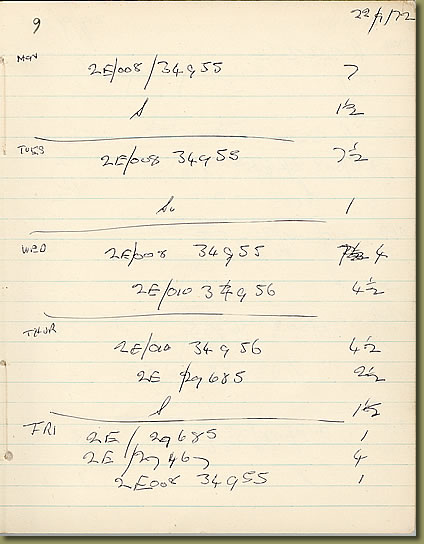 9 22/1/72
MON
2E/008/34955 7
S 1½
TUES
2E/008 34955 7½
S. 1
WED
2E/008 34955 4
2E/010 34956 4½
THUR
2E/010 34956 4½
2E /29685 2½
S 1½
FRI
2E / 29685 1
2E /29467 4
2E008 34955 1